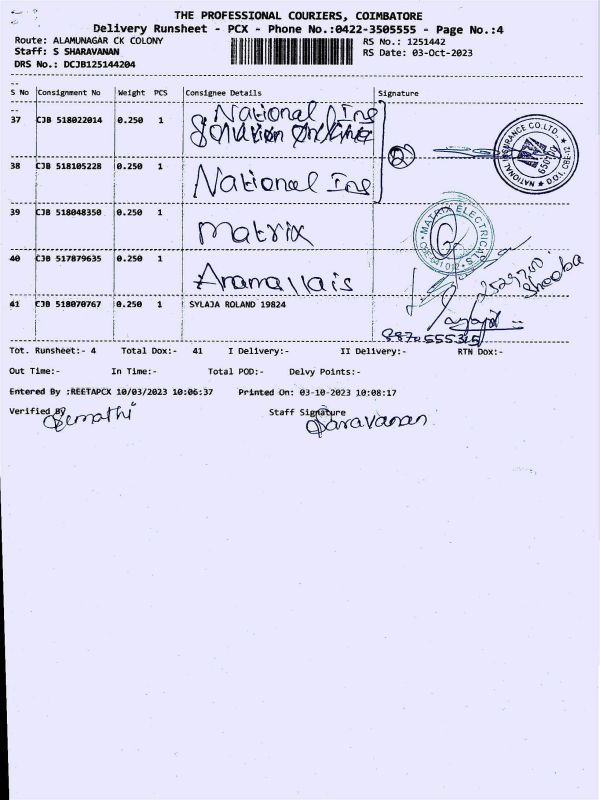 THE PROFESSIONAL COURIERS, COIMBATORE
Delivery Runsheet - PCX - Phone No.:0422-3505555 - Page No.:4
Route: ALAMUNAGAR CK COLONY RS No.: 1251442
Staff: S SHARAVANAN RS Date: 03-Oct-2023
DRS No.: DCJB125144204
S No Consignment No Weight PCS Consignee Details Signature
37 CJB 518022014 0.250 1 National Ins
2
NATIONAL INSURANCE CO.LTD.,
38 CJB 518105228 0.250 1 National Ins
39 CJB 518048350 0.250 1 Matrix
MATRIX ELECTRICALS
40 CJB 517879635 0.250 1
2523700
Shooba
41 CJB 518070767 0.250 1 SYLAJA ROLAND 19824
Tot. Runsheet:- 4 Total Dox:- 41 I Delivery:- II Delivery:- RTN Dox:-
Out Time:- In Time:- Total POD:- Delvy Points:-
Entered By :REETAPCX 10/03/2023 10:06:37 Printed On: 03-10-2023 10:08:17
Verified By Staff Signature
Saravanan